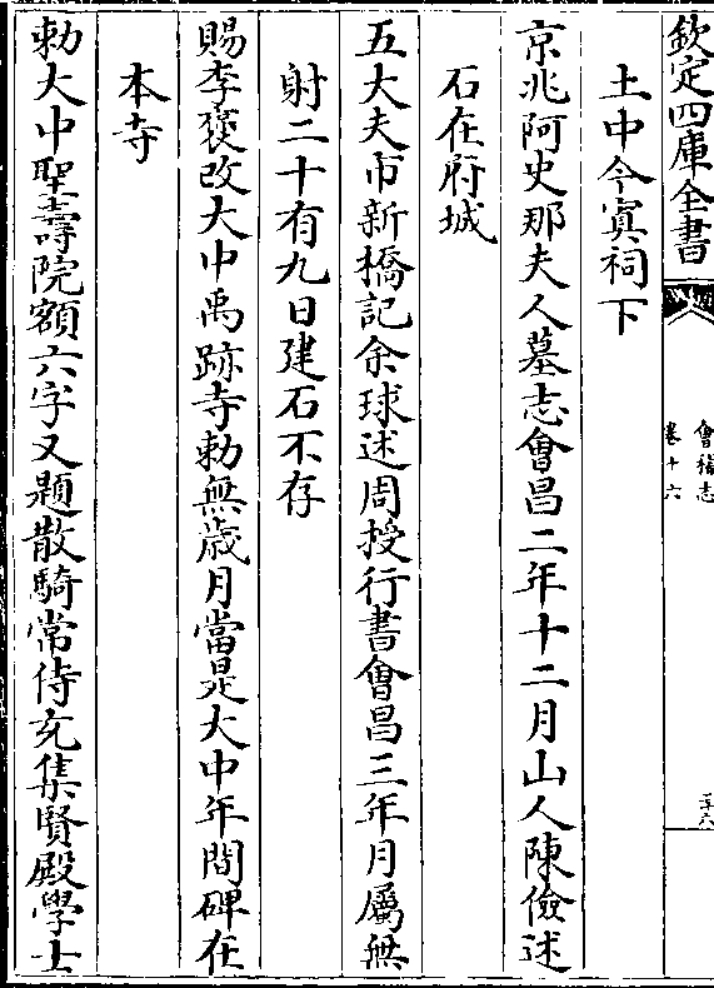 欽定四庫全書
會稽志
卷十六
三十六
土中今寘祠下
京兆阿史那夫人墓志會昌二年十二月山人陳儉述
石在府城
五大夫市新橋記余球述周授行書會昌三年月屬無
射二十有九日建石不存
賜李褒改大中禹跡寺勅無歲月當是大中年間碑在
本寺
勅大中聖壽院額六字又題散騎常侍充集賢殿學士